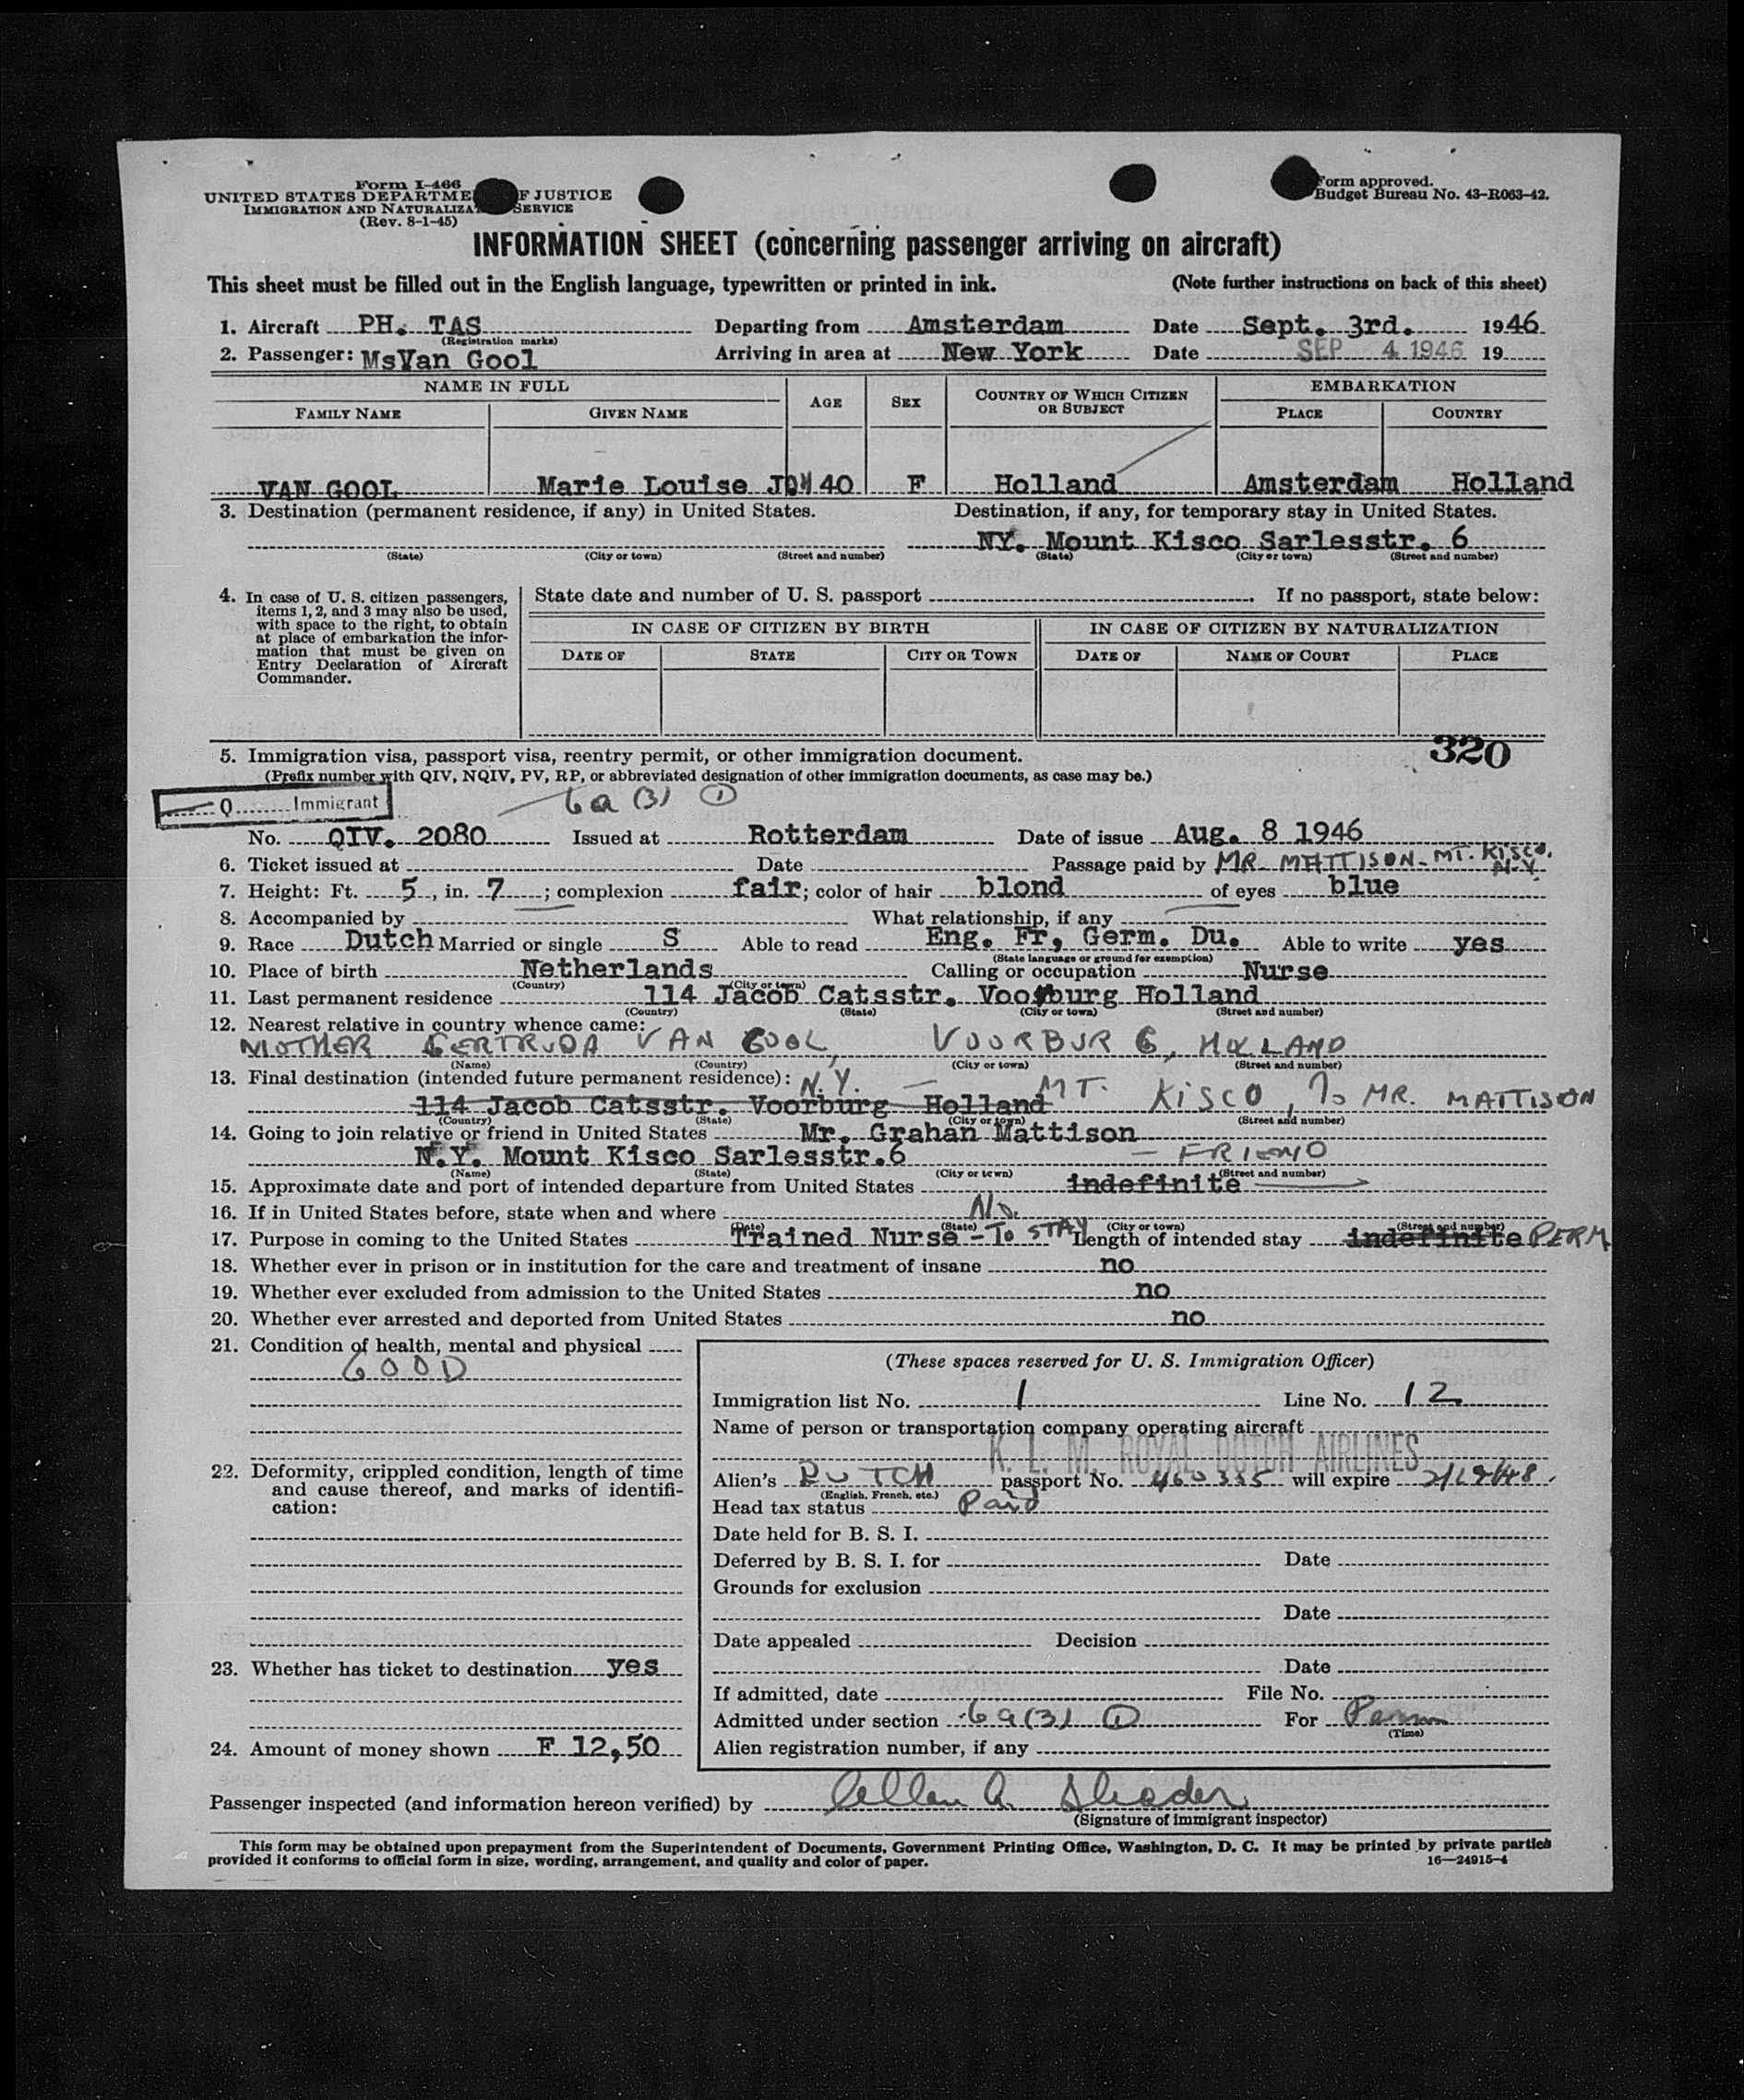 Form I-466
UNITED STATES DEPARTME F JUSTICE
IMMIGRATION AND NATURALIZA SERVICE
(Rev. 8-1-45)
Form approved.
Budget Bureau No. 43-R063-42.
INFORMATION SHEET (concerning passenger arriving on aircraft)
This sheet must be filled out in the English language, typewritten or printed in ink. (Note further instructions on back of this sheet)
1. Aircraft PH. TAS Departing from Amsterdam Date Sept. 3rd. 1946
(Registration marks)
2. Passenger: MsVan Gool Arriving in area at New York Date SEP 4 1946 19
NAME IN FULL AGE SEX COUNTRY OF WHICH CITIZEN OR SUBJECT EMBARKATION
FAMILY NAME GIVEN NAME PLACE COUNTRY
VAN GOOL Marie Louise 40 F Holland Amsterdam Holland
3. Destination (permanent residence, if any) in United States. Destination, if any, for temporary stay in United States.
NY. Mount Kisco Sarlesstr. 6
(State) (City or town) (Street and number) (State) (City or town) (Street and number)
4. In case of U. S. citizen passengers, items 1, 2, and 3 may also be used, with space to the right, to obtain at place of embarkation the information that must be given on Entry Declaration of Aircraft Commander.
State date and number of U. S. passport . If no passport, state below:
IN CASE OF CITIZEN BY BIRTH IN CASE OF CITIZEN BY NATURALIZATION
DATE OF STATE CITY OR TOWN DATE OF NAME OF COURT PLACE
320
5. Immigration visa, passport visa, reentry permit, or other immigration document.
(Prefix number with QIV, NQIV, PV, RP, or abbreviated designation of other immigration documents, as case may be.)
Q Immigrant 6a (3) 1
No. QIV. 2080 Issued at Rotterdam Date of issue Aug. 8 1946
6. Ticket issued at Date Passage paid by MR. MATTISON - MT. KISCO. N.Y.
7. Height: Ft. 5, in. 7; complexion fair; color of hair blond of eyes blue
8. Accompanied by What relationship, if any
9. Race Dutch Married or single S Able to read Eng. Fr, Germ. Du. Able to write yes
(State language or ground for exemption)
10. Place of birth Netherlands Calling or occupation Nurse
(Country) (City or town)
11. Last permanent residence 114 Jacob Catsstr. Voorburg Holland
(Country) (State) (City or town) (Street and number)
12. Nearest relative in country whence came:
MOTHER GERTRUDA VAN GOOL, VOORBURG, HOLLAND
(Name) (Country) (City or town) (Street and number)
13. Final destination (intended future permanent residence): N.Y. — MT. KISCO, To MR. MATTISON
114 Jacob Catsstr. Voorburg Holland
(Country) (State) (City or town) (Street and number)
14. Going to join relative or friend in United States Mr. Grahan Mattison
N.Y. Mount Kisco Sarlesstr.6 - FRIEND
(Name) (State) (City or town) (Street and number)
15. Approximate date and port of intended departure from United States indefinite
16. If in United States before, state when and where No.
(Date) (State) (City or town) (Street and number)
17. Purpose in coming to the United States Trained Nurse - To STAY Length of intended stay indefinite PERM
18. Whether ever in prison or in institution for the care and treatment of insane no
19. Whether ever excluded from admission to the United States no
20. Whether ever arrested and deported from United States no
21. Condition of health, mental and physical
GOOD
22. Deformity, crippled condition, length of time and cause thereof, and marks of identification:
23. Whether has ticket to destination yes
24. Amount of money shown F 12,50
(These spaces reserved for U. S. Immigration Officer)
Immigration list No. 1 Line No. 12
Name of person or transportation company operating aircraft
K. L. M. ROYAL DUTCH AIRLINES
Alien's DUTCH passport No. 460335 will expire 2/29/48.
(English, French, etc.)
Head tax status Paid
Date held for B. S. I.
Deferred by B. S. I. for Date
Grounds for exclusion
Date
Date appealed Decision
Date
If admitted, date File No.
Admitted under section 6a(3) 1 For Perm
(Time)
Alien registration number, if any
Passenger inspected (and information hereon verified) by
(Signature of immigrant inspector)
This form may be obtained upon prepayment from the Superintendent of Documents, Government Printing Office, Washington, D. C. It may be printed by private parties
provided it conforms to official form in size, wording, arrangement, and quality and color of paper. 16—24915-4